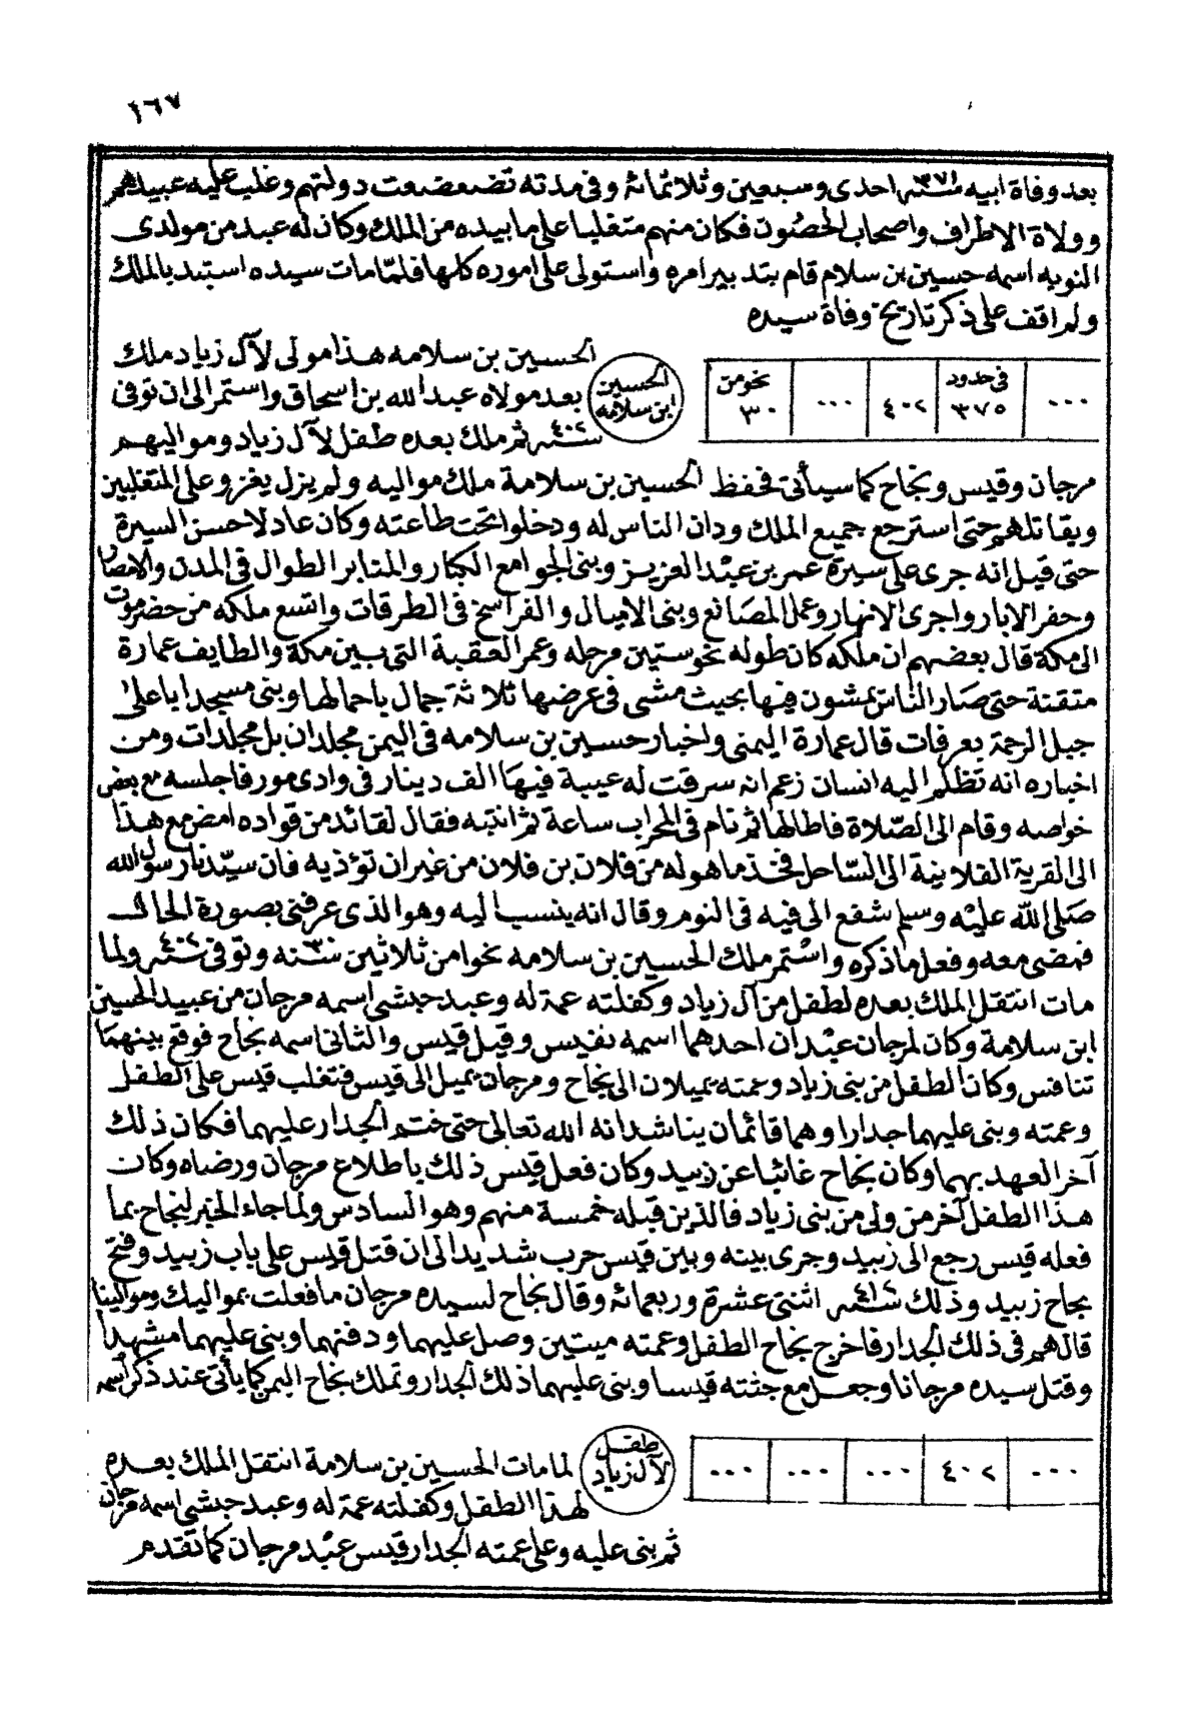 ١٦٧
بعد وفاة ابيه سنة ٣٧١ احدى وسبعين وثلاثمائة وفى مدته تضعضعت دولتهم وغلب عليه عبيدهم
وولاة الاطراف واصحاب الحصُون فكان منهم متغلبا على ما بيده من الملك وكان له عبد من مولدى
النوبه اسمه حسين بن سلام قام بتدبير امره واستولى على اموره كلها فلمّا مات سيده استبد بالملك
ولم اقف على ذكر تاريخ وفاة سيده
... | فى حدود ٣٧٥ | ٤٠٢ | ... | نحو من ٣٠
الحسين ابن سلامه
الحسين بن سلامه هذا مولى لآل زياد ملك
بعد مولاه عبد الله بن اسحاق واستمر الى ان توفى
سنة ٤٠٢ ثم ملك بعده طفل لآل زياد ومواليهم
مرجان وقيس ونجاح كما سيأتى فحفظ الحسين بن سلامة ملك مواليه ولم يزل يغزو على المتغلبين
ويقاتلهم حتى استرجع جميع الملك ودان الناس له ودخلوا تحت طاعته وكان عادلا حسن السيرة
حتى قيل انه جرى على سيرة عمر بن عبْد العزيز وبنى الجوامع الكبار والمنابر الطوال فى المدن والامصار
وحفر الابار واجرى الانهار وعمل المصانع وبنى الاميال والفراسخ فى الطرقات واتسع ملكه من حضرموت
الى مكة قال بعضهم ان ملكه كان طوله نحو ستين مرحله وعمر العقبة التى بين مكة والطايف عمارة
متقنة حتى صَار الناس يمشون فيها بحيث مشى فى عرضها ثلاثة جمال باحمالها وبنى مسجدا باعلىٰ
جبل الرحمة بعرفات قال عمارة اليمنى واخبار حسين بن سلامه فى اليمن مجلدان بل مجلدات ومن
اخباره انه تظلم اليه انسان زعم انه سرقت له عيبة فيهَا الف دينار فى وادى مور فاجلسه مع بعض
خواصه وقام الى الصّلاة فاطالها ثم نام فى المحراب ساعة ثم انتبه فقال لقائد من قواده امض مع هذا
الى القرية الفلانية الى السّاحل فخذ ما هو له من فلان بن فلان من غير ان تؤذيه فان سيّدنا رسول الله
صَلى الله عليْه وسلم شفع الى فيه فى النوم وقال انه ينسب اليه وهو الذى عرفنى بصورة الحال
فمضى معه وفعل ما ذكره واسْتمر ملك الحسين بن سلامه نحوا من ثلاثين ٣٠ سنه وتوفى سنة ٤٠٢ ولما
مات انتقل الملك بعده لطفل من آل زياد وكفلته عمة له وعبد حبشى اسمه مرجان من عبيد الحسين
ابن سلامة وكان لمرجان عبْدان احدهما اسمه نفيس وقيل قيس والثانى اسمه نجاح فوقع بينهمَا
تنافس وكان الطفل من بنى زياد وعمته يميلان الى نجاح ومرجان يميل الى قيس فتغلب قيس على الطفل
وعمته وبنى عليهما جدارا وهما قائمان يناشدانه الله تعالى حتى ختم الجدار عليهما فكان ذلك
آخر العهد بهما وكان نجاح غائبا عن زبيد وكان فعل قيس ذلك باطلاع مرجان ورضاه وكان
هذا الطفل آخر من ولى من بنى زياد فالذين قبله خمسة منهم وهو السادس ولما جاء الخبر لنجاح بما
فعله قيس رجع الى زبيد وجرى بينه وبين قيس حرب شديد الى ان قتل قيس على باب زبيد وفتح
نجاح زبيد وذلك سنة ٤١٢ اثنتى عشرة وربعمائة وقال نجاح لسيده مرجان ما فعلت بمواليك وموالينا
قال هم فى ذلك الجدار فاخرج نجاح الطفل وعمته ميتين وصل عليهما ودفنهما وبنى عليهما مشهدا
وقتل سيده مرجانا وجعل مع جثته قيسا وبنى عليهما ذلك الجدار وتملك نجاح اليمن كما يأتى عند ذكر اسمه
... | ٤٠٢ | ... | ... | ...
طفل لآل زياد
لما مات الحسين بن سلامة انتقل الملك بعده
لهذا الطفل وكفلته عمة له وعبد حبشى اسمه مرجان
ثم بنى عليه وعلى عمته الجدار قيس عبْد مرجان كما تقدم